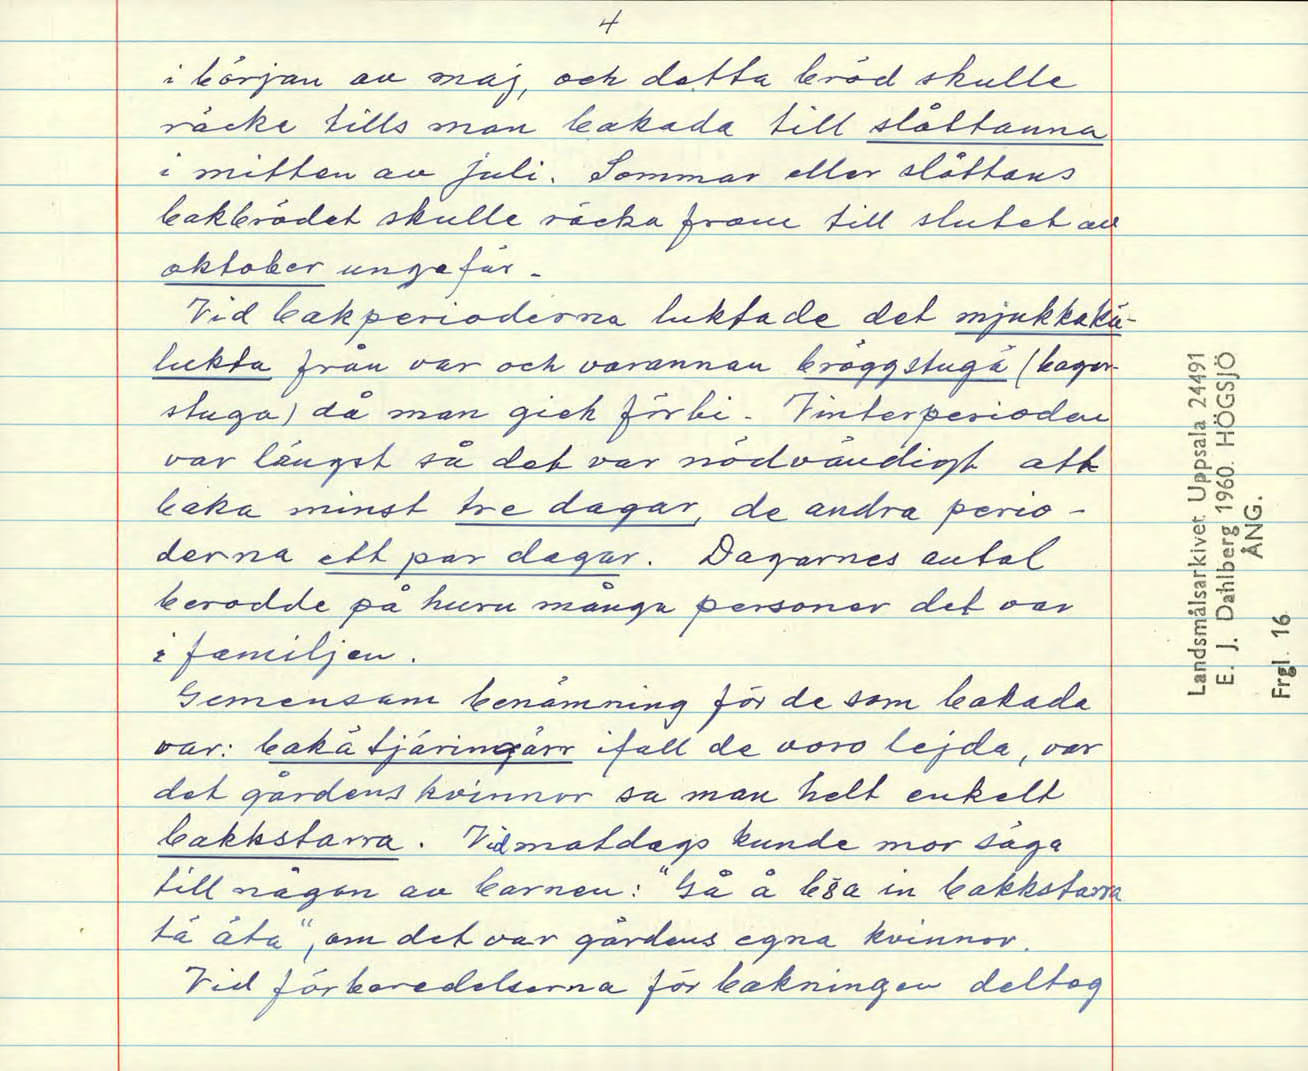 4
i början av maj, och detta bröd skulle
räcke tills man bakada till slåttanna
i mitten av juli. Sommar eller slåttans
bakbrödet skulle räcka fram till slutet av
oktober ungefär -
Vid bakperioderna luktade det mjukkakü-
lukta från var och varannan bröggstugä (bagar-
stuga) då man gick förbi - Vinterperioden
var längst så det var nödvändigt att
baka minst tre dagar, de andra perio-
derna ett par dagar. Dagarnes antal
berodde på huru många personer det var
i familjen.
Gemensam benämning för de som bakada
var: bakätjäringärr ifall de voro lejda, var
det gårdens kvinnor sa man helt enkelt
bakkstarra. Vid matdags kunde mor säga
till någon av barnen: "Gå å in bakkstarra
tä äta", om det var gårdens egna kvinnor.
Vid förberedelserna för bakningen deltog
Landsmålsarkivet, Uppsala 24491
E. J. Dahlberg 1960. HÖGSJÖ
ÅNG.
Frgl. 16